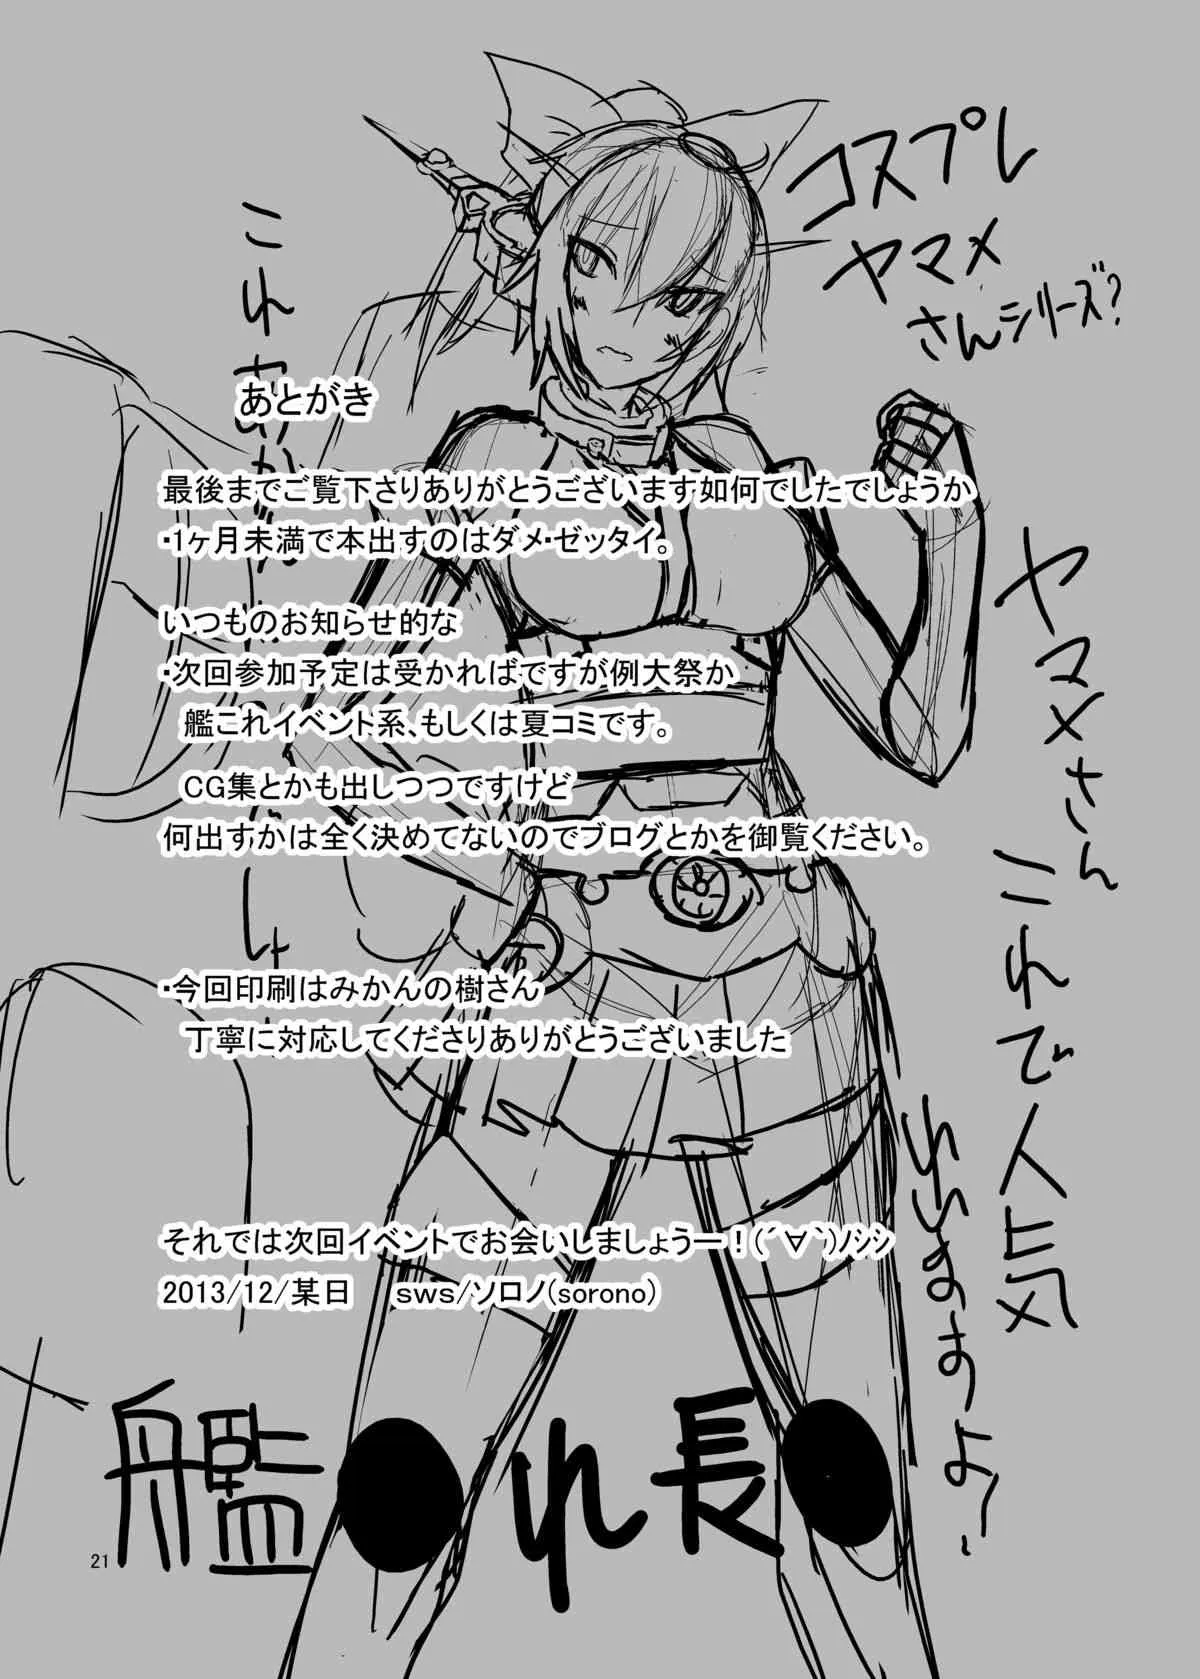 コスプレ
ヤマメ
さんシリーズ?
あとがき
最後までご覧下さりありがとうございます如何でしたでしょうか
・1ヶ月未満で本出すのはダメ・ゼッタイ。
いつものお知らせ的な
・次回参加予定は受かればですが例大祭か
艦これイベント系、もしくは夏コミです。
CG集とかも出しつつですけど
何出すかは全く決めてないのでブログとかを御覧ください。
・今回印刷はみかんの樹さん
丁寧に対応してくださりありがとうございました
それでは次回イベントでお会いしましょうー!(´∀`)ﾉｼｼ
2013/12/某日 sws/ソロノ(sorono)
ヤマメさん
これで人気
これ
艦●れ長●
21